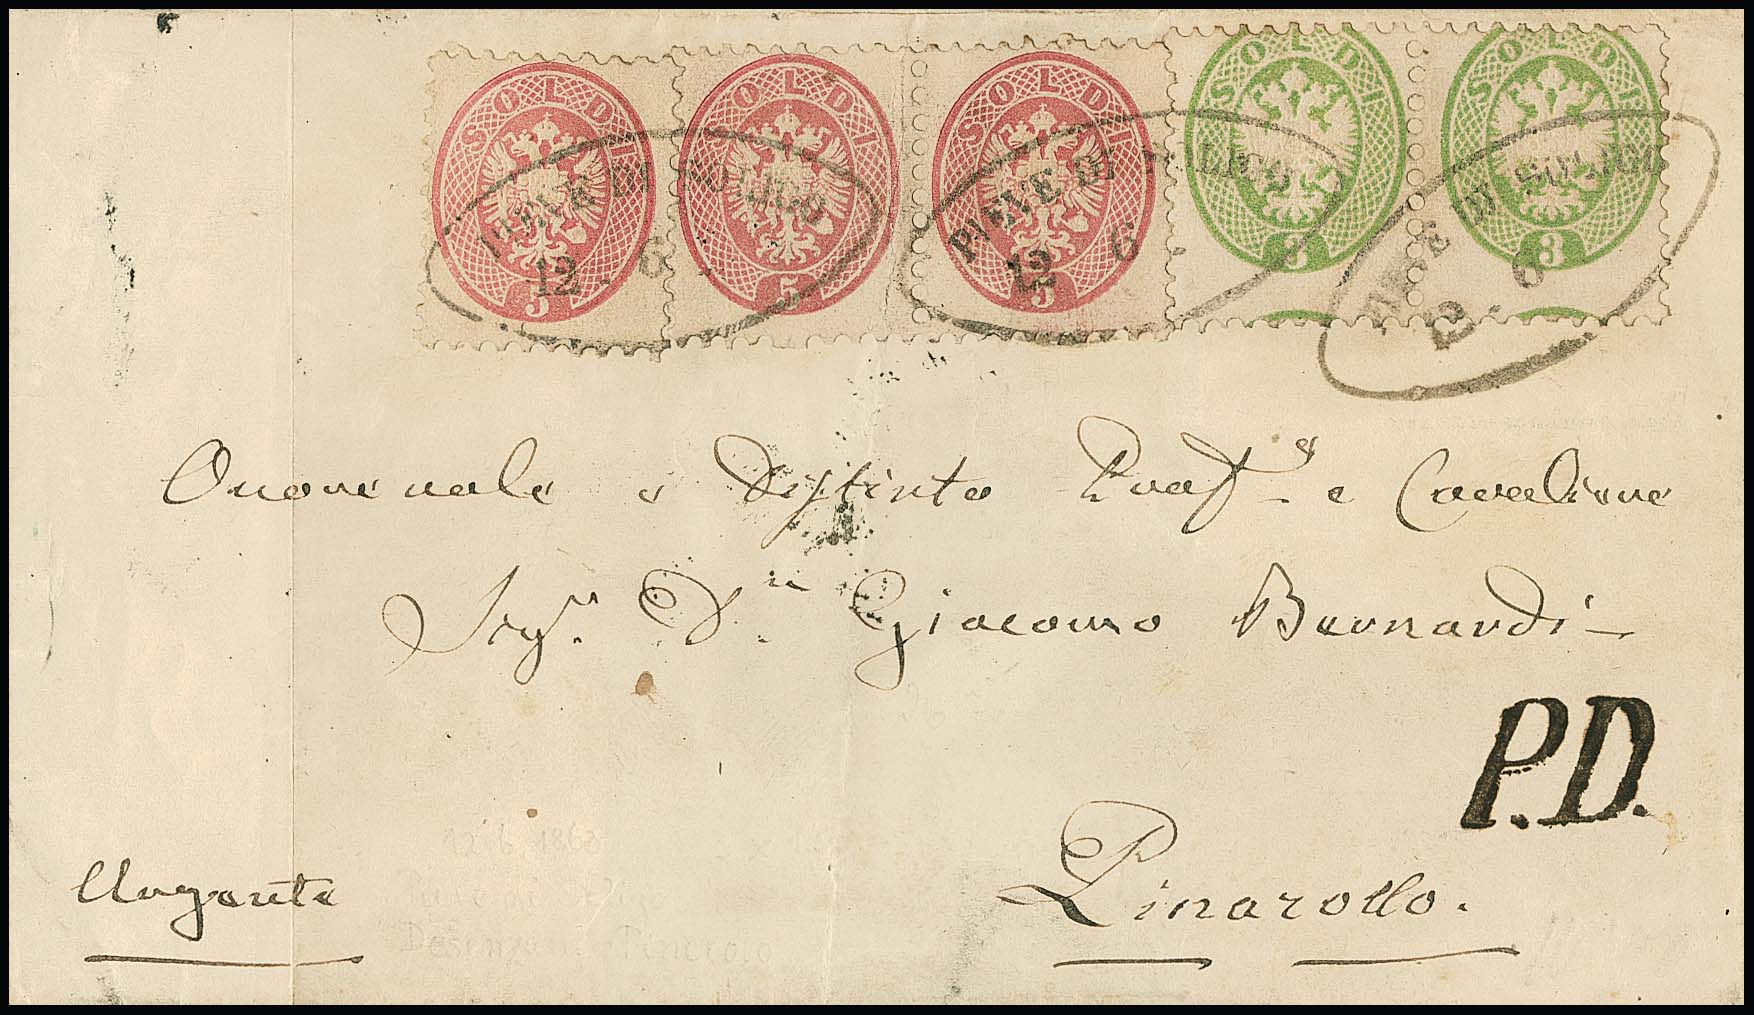 SOLDI SOLDI SOLDI SOLDI SOLDI
PIEVE DI SOLIGO PIEVE DI SOLIGO PIEVE DI SOLIGO
12 6 12 6 12 6
5 5 5 3 3
Onorevole e Distinto Prof.e e Cavaliere
Sigr. Dn Giacomo Bernardi
P.D.
12 6 1863
Urgente
Pinarollo.
Pieve di Soligo
Desenzano Pinerolo